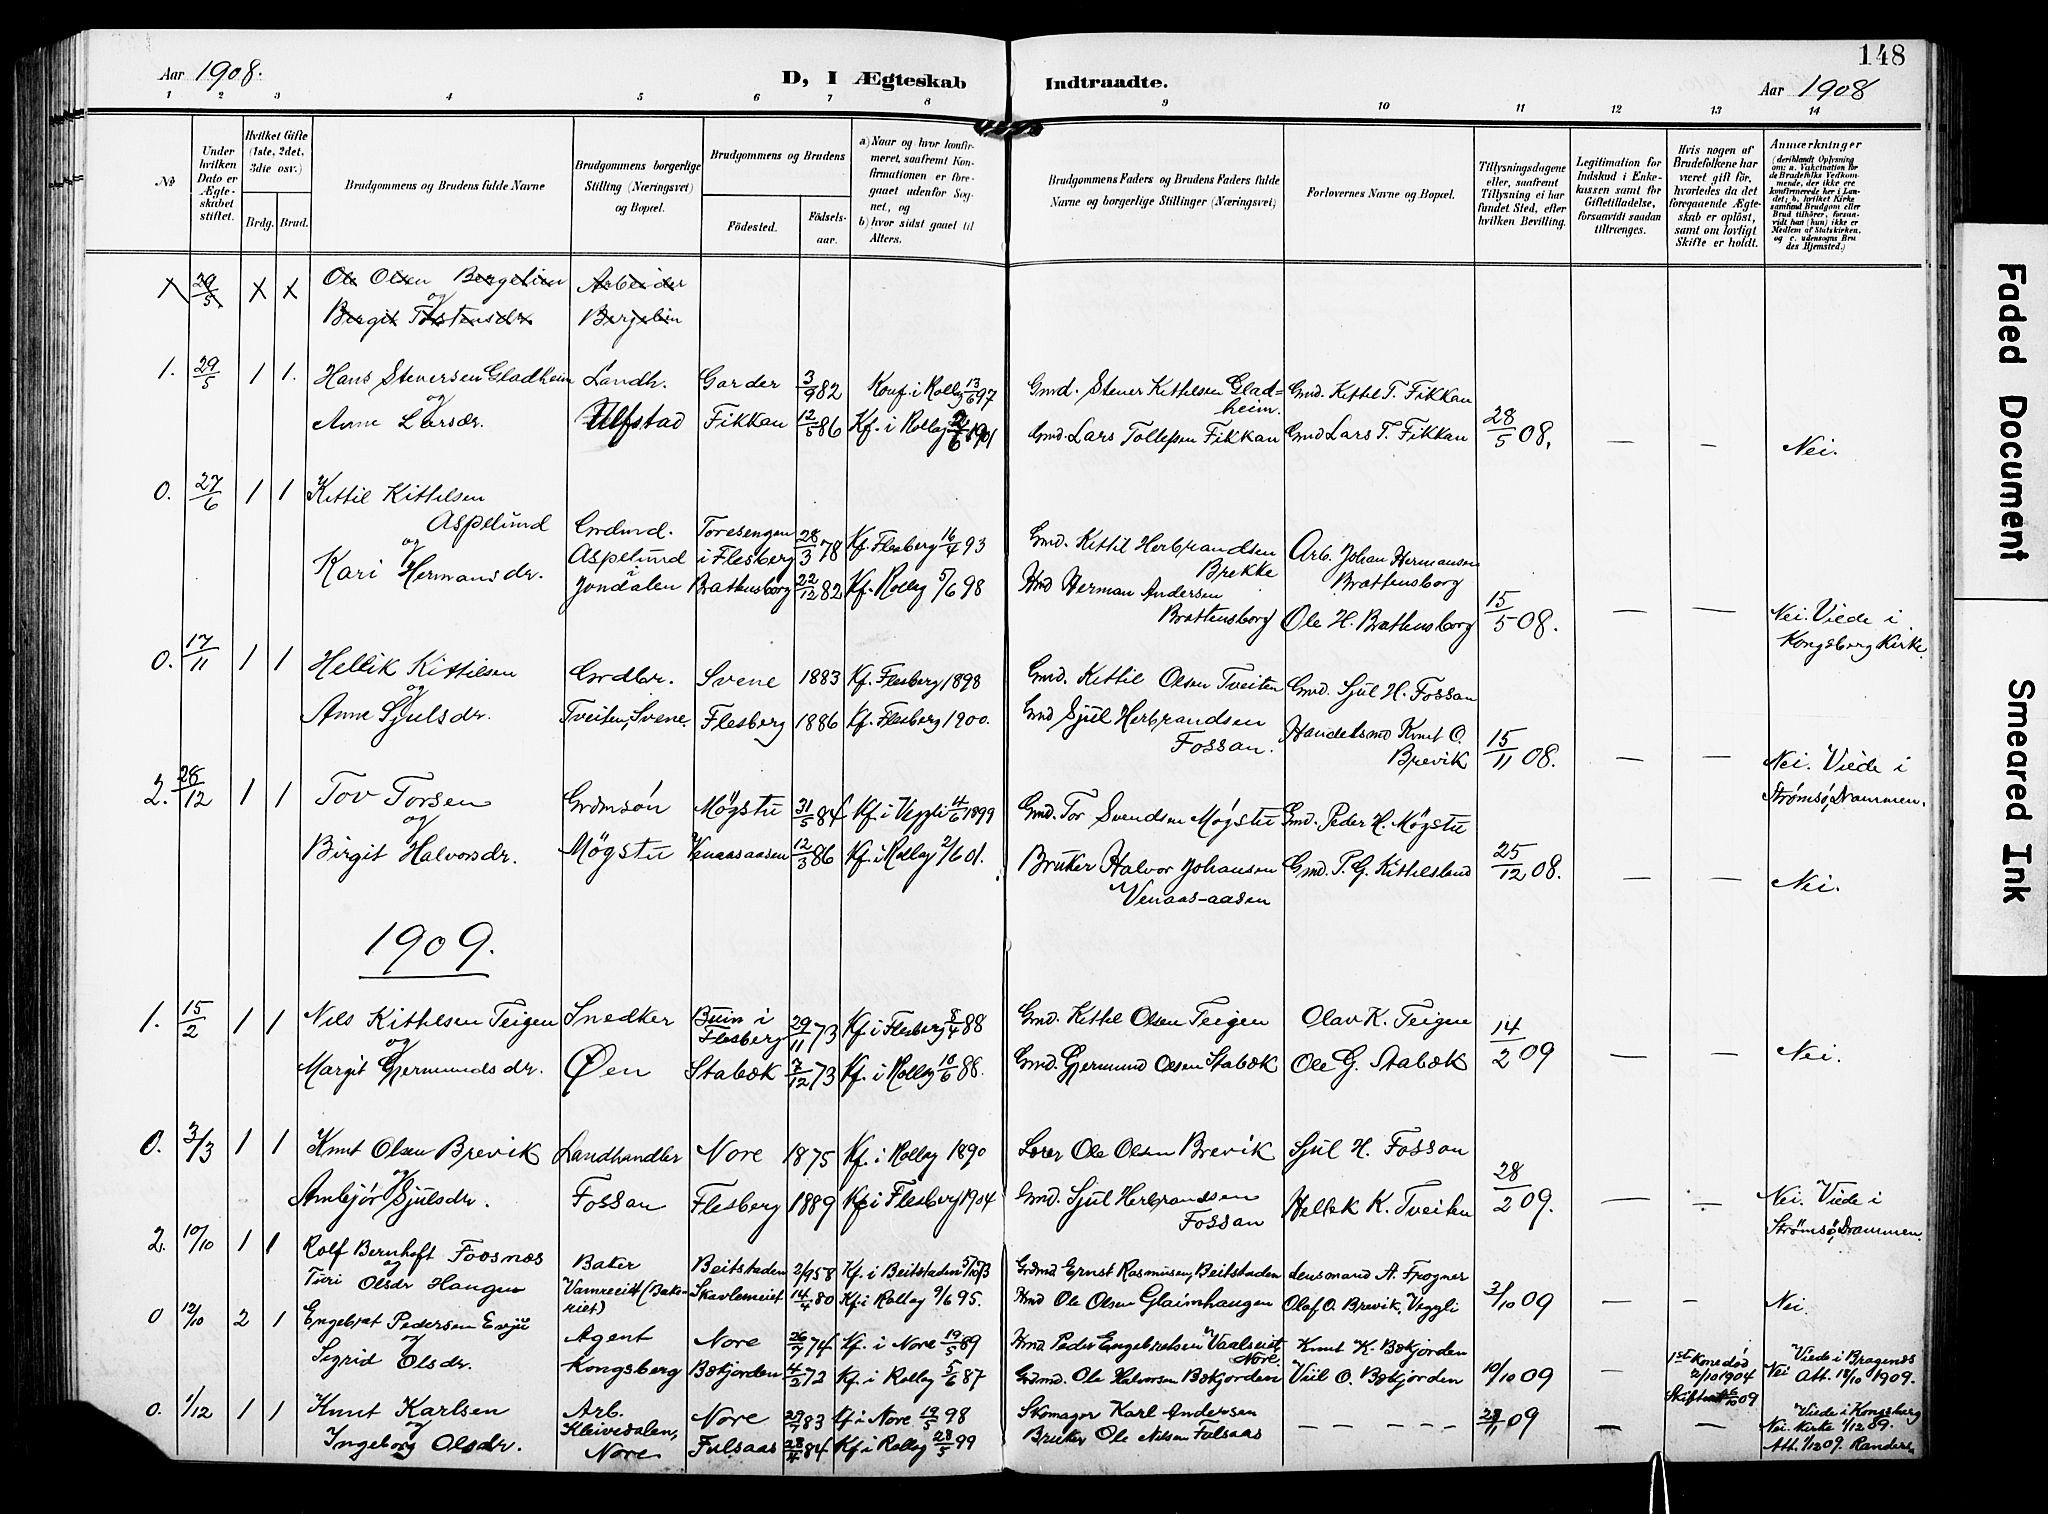 148
Aar 1908.
D, I Ægteskab
Indtraadte.
Aar 1908
1 2 3 4 5 6 7 8 9 10 11 12 13 14
No
Under hvilken Dato er Ægteskabet stiftet.
Hvilket Gifte (1ste, 2det, 3die osv.)
Brdg. Brud.
Brudgommens og Brudens fulde Navne
Brudgommens borgerlige Stilling (Næringsvei) og Bopæl.
Brudgommens og Brudens
Fødested.
Fødselsaar.
a) Naar og hvor konfirmeret, saafremt Konfirmationen er foregaaet udenfor Sognet, og
b) hvor sidst gaaet til Alters.
Brudgommens Faders og Brudens Faders fulde Navne og borgerlige Stillinger (Næringsvei)
Forlovernes Navne og Bopæl.
Tillysningsdagene eller, saafremt Tillysning ei har fundet Sted, efter hvilken Bevilling.
Legitimation for Indskud i Enkekassen samt for Giftetilladelse, forsaavidt saadan tiltrænges.
Hvis nogen af Brudefolkene har været gift før, hvorledes da det foregaaende Ægteskab er opløst, samt om lovligt Skifte er holdt.
Anmærkninger
(deriblandt Oplysning om: a. Vaccination for de Brudefolks Vedkommende, der ikke ere konfirmerede her i Landet; b. hvilket Kirkesamfund Brudgom eller Brud tilhører, forsaavidt han (hun) ikke er Medlem af Statskirken, og c. udensogns Brudes Hjemsted.)
X 29/5 X X Ole Olsen Bergelien Arbeider
og
Birgit Torstensdr Bergelien
1. 29/5 1 1. Hans Stenersen Gladheim Landh. Garder 3/9 82 Konf. i Rollag 13/6 97 Gmd. Stener Kittilsen Gladheim. Gmd. Kittil T. Fikkan
og
Anne Larsdr. Ulfstad Fikkan 12/5 86 Kf. i Rollag 2/6 1901 Gmd. Lars Tollefsen Fikkan Gmd Lars T. Fikkan 28/5 08. — — Nei.
0. 27/6 1 1 Kittil Kittilsen
Aspelund Grdmd. Toresengen 28/3 78 Kf. Flesberg 16/4 93 Gmd. Kittil Herbrandsen Brekke Arb. Johan Hermansen Brattensborg
og Aspelund i Flesberg
Kari Hermansdr. i Jondalen Brattensborg 22/12 82 Kf. Rollag 5/6 98 Hmd Herman Andersen Brattensborg Ole H. Brattensborg 15/5 08. — — Nei. Viede i Kongsberg Kirke.
0. 17/11 1 1 Hellik Kittilsen Grdbr. Svene 1883 Kf. Flesberg 1898 Gmd. Kittil Olsen Tveiten Gmd. Sjul H. Fossan
og
Anne Sjulsdr. Tveiten, Svene. Flesberg 1886 Kf. Flesberg 1900. Gmd Sjul Herbrandsen Fossan. Handelsmd Knut O. Brevik 15/11 08. — — Nei. Viede i Strømsø, Drammen.
2. 28/12 1 1 Tov Torsen Grdmsøn Møgstu 31/5 84 Kf. i Veggli 4/6 1899 Gmd. Tor Svendsen Møgstu Gmd. Peder H. Møgstu
og
Birgit Halvorsdr. Møgstu Venaasaasen 12/3 86 Kf. i Rollag 2/6 01. Bruker Halvor Johansen Venaas-aasen Gmd. P. G. Kittilsland 25/12 08. — — Nei.
1909.
1. 15/2 1 1 Nils Kittilsen Teigen Snedker Buin i Flesberg 29/11 73 Kf. i Flesberg 8/4 88 Gmd. Kittil Olsen Teigen Olav K. Teigen
og
Margit Gjermundsdr. Øen Stabæk 7/12 73 Kf. i Rollag 10/6 88. Gmd. Gjermund Olsen Stabæk Ole G. Stabæk 14/2 09 — — Nei.
0. 3/3 1 1 Knut Olsen Brevik Landhandler Nore 1875 Kf. i Rollag 1890 Lærer Ole Olsen Brevik Sjul H. Fossan
og
Anbjør Sjulsdr. Fossan Flesberg 1889 Kf i Flesberg 1904 Gmd. Sjul Herbrandsen Fossan Hellek K. Tveiten 28/2 09. — — Nei. Viede i Strømsø, Drammen.
2. 10/10 1 1 Rolf Bernhoft Foosnæs Baker Beitstaden 2/9 58 Kf. i Beitstaden Grdmd Ernst Rasmusen, Beitstaden Lensmand A. Frogner
og
Turi Olsdr Haugen Skavlemeiet 14/4 80 Kf i Rollag 9/6 95. Hmd Ole Olsen Glaimhaugen Olaf O. Brevik, Veggli 3/10 09 — — Nei.
0 12/10 2 1 Engebret Pedersen Evju Agent Nore 26/7 74 Kf. i Nore 19/5 89 Hmd Peder Engebretsen Vaalseiet Nore. Knut K. Bækjorden
og
Sigrid Olsdr. Kongsberg Bækjorden 4/2 72 Kf. i Rollag 5/6 87 Grdmd. Ole Halvorsen Bækjorden Viil O. Bækjorden 10/10 09 — 1ste Kone død 2/10 1904 Skiftet 09 Nei Viede i Bragenæs Att. 12/10 1909.
0. 1/12 1 1 Knut Karlsen Arb. Nore 29/7 83 Kf i Nore 19/5 98 Skomager Karl Andersen
og Kleivedalen,
Ingeborg Olsdr. Nore Fulsaas 28/4 84 Kf. i Rollag 28/5 99 Bruker Ole Nilsen Fulsaas — — — — — 09 — — Nei. Viede i Kongsberg Kirke 1/12 09. Att. 1/12 09. Randers
Faded Document
Smeared Ink